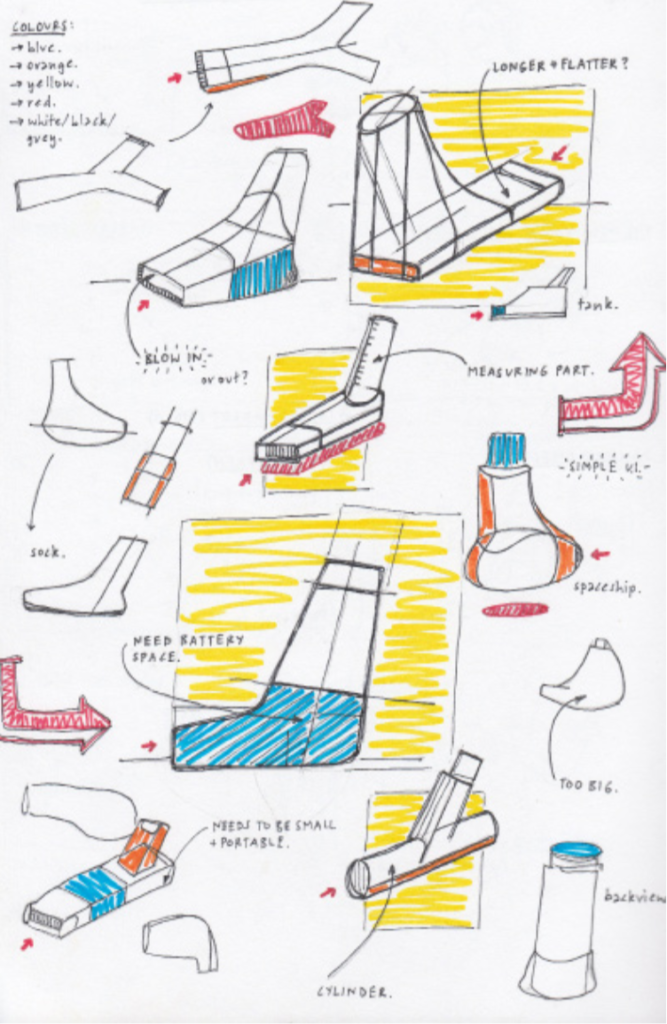 COLOURS:
→ blue.
→ orange.
→ yellow.
→ red.
→ white/black/
grey.
LONGER + FLATTER?
tank.
BLOW IN.
or out?
MEASURING PART.
SIMPLE U.I.
sock.
spaceship.
NEED BATTERY
SPACE.
TOO BIG.
NEEDS TO BE SMALL
+ PORTABLE.
backview
CYLINDER.